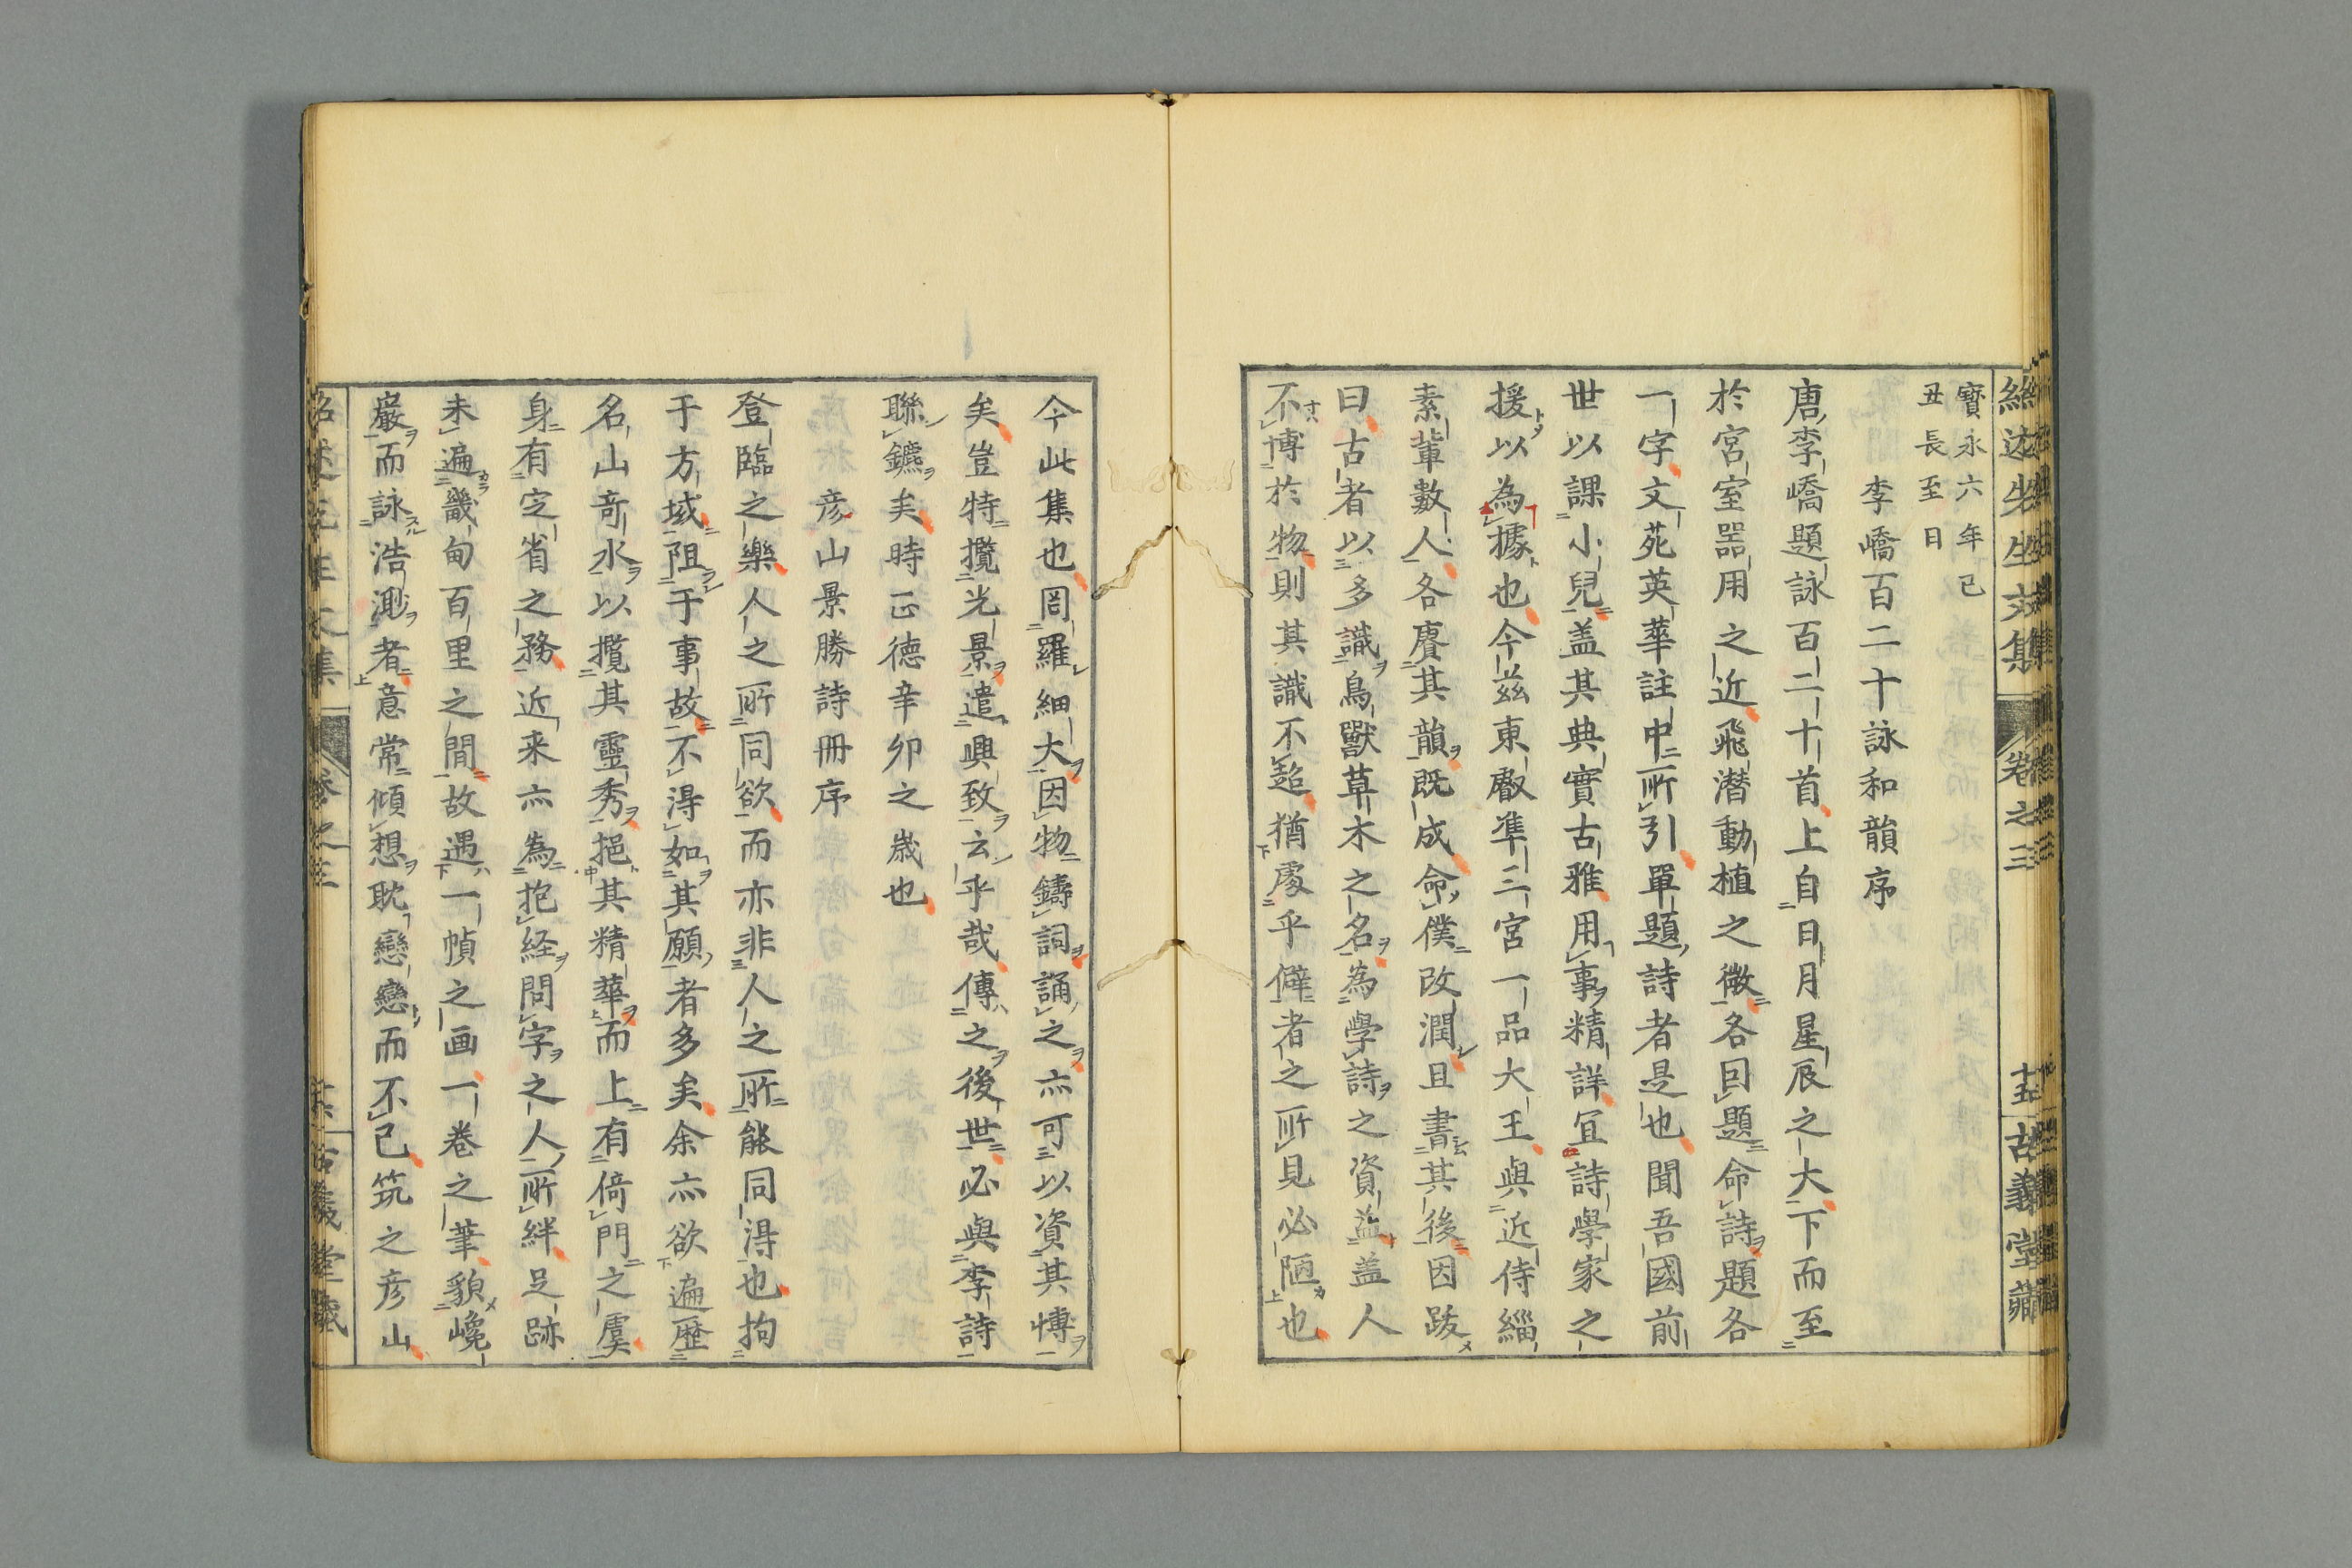 紹述先生文集 卷之三 十五 古義堂藏
寳永六年己
丑長至日
李嶠百二十詠和韻序
唐李嶠題詠百二十首上自日月星辰之大下而至
於宮室器用之近飛潜動植之微各因題命詩題各
一字文苑英華註中所引單題詩者是也聞吾國前
世以課小兒盖其典實古雅用事精詳宜詩學家之
援以為據也今兹東叡凖三宮一品大王與近侍緇
素輩數人各賡其韻既成命僕改潤且書其後因跋
曰古者以多識鳥獸草木之名為學詩之資益盖人
不博於物則其識不超猶處乎僻者之所見必陋也
今此集也罔羅細大因物鑄詞誦之亦可以資其博
矣豈特攬光景遣興致云乎哉傳之後世必與李詩
聯鑣矣時正徳辛卯之歳也
彦山景勝詩冊序
登臨之樂人之所同欲而亦非人之所能同得也拘
于方域阻于事故不得如其願者多矣余亦欲遍歴
名山奇水以攬其靈秀挹其精華而上有倚門之虞
身有定省之務近来亦為抱経問字之人所絆足跡
未遍畿甸百里之間故遇一幀之画一巻之筆貌巉
巖而詠浩渺者意常傾想耽戀戀而不已筑之彦山